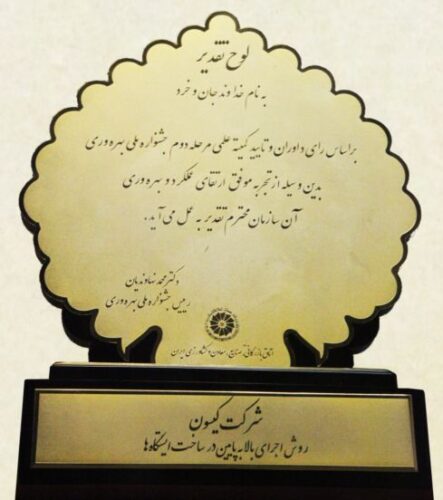 لوح تقدیر
به نام خداوند جان و خرد
براساس رای داوران و تایید کمیته علمی مرحله دوم جشنواره ملی بهره وری
بدین وسیله از تجربه موفق ارتقای عملکرد و بهره وری
آن سازمان محترم تقدیر به عمل می آید.
دکتر محمد نهاوندیان
رییس جشنواره ملی بهره وری
اتاق بازرگانی، صنایع، معادن و کشاورزی ایران
شرکت کیسون
روش اجرای بالا به پایین در ساخت ایستگاه ها